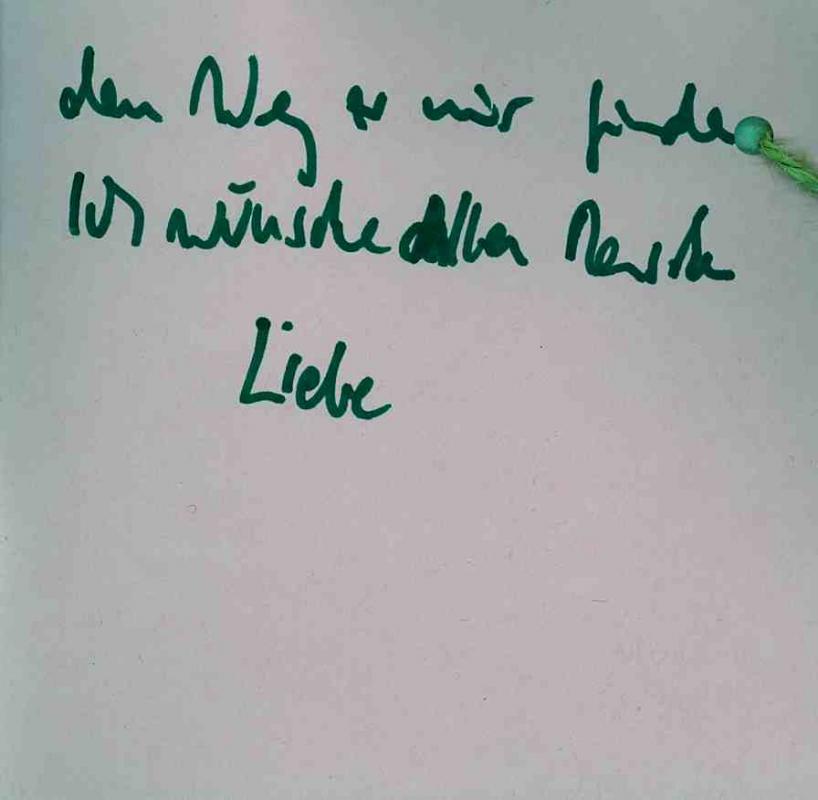 den Weg zu mir finden
Ich wünsche allen Menschen
Liebe